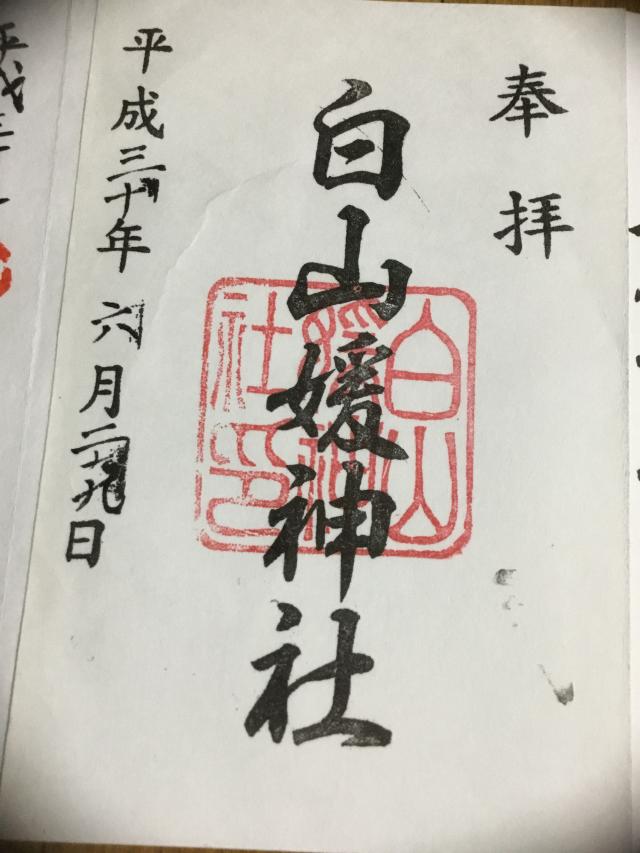 奉拝
白山媛神社
白山
媛神
社印
平成三十年 六月二十九日
平成三十